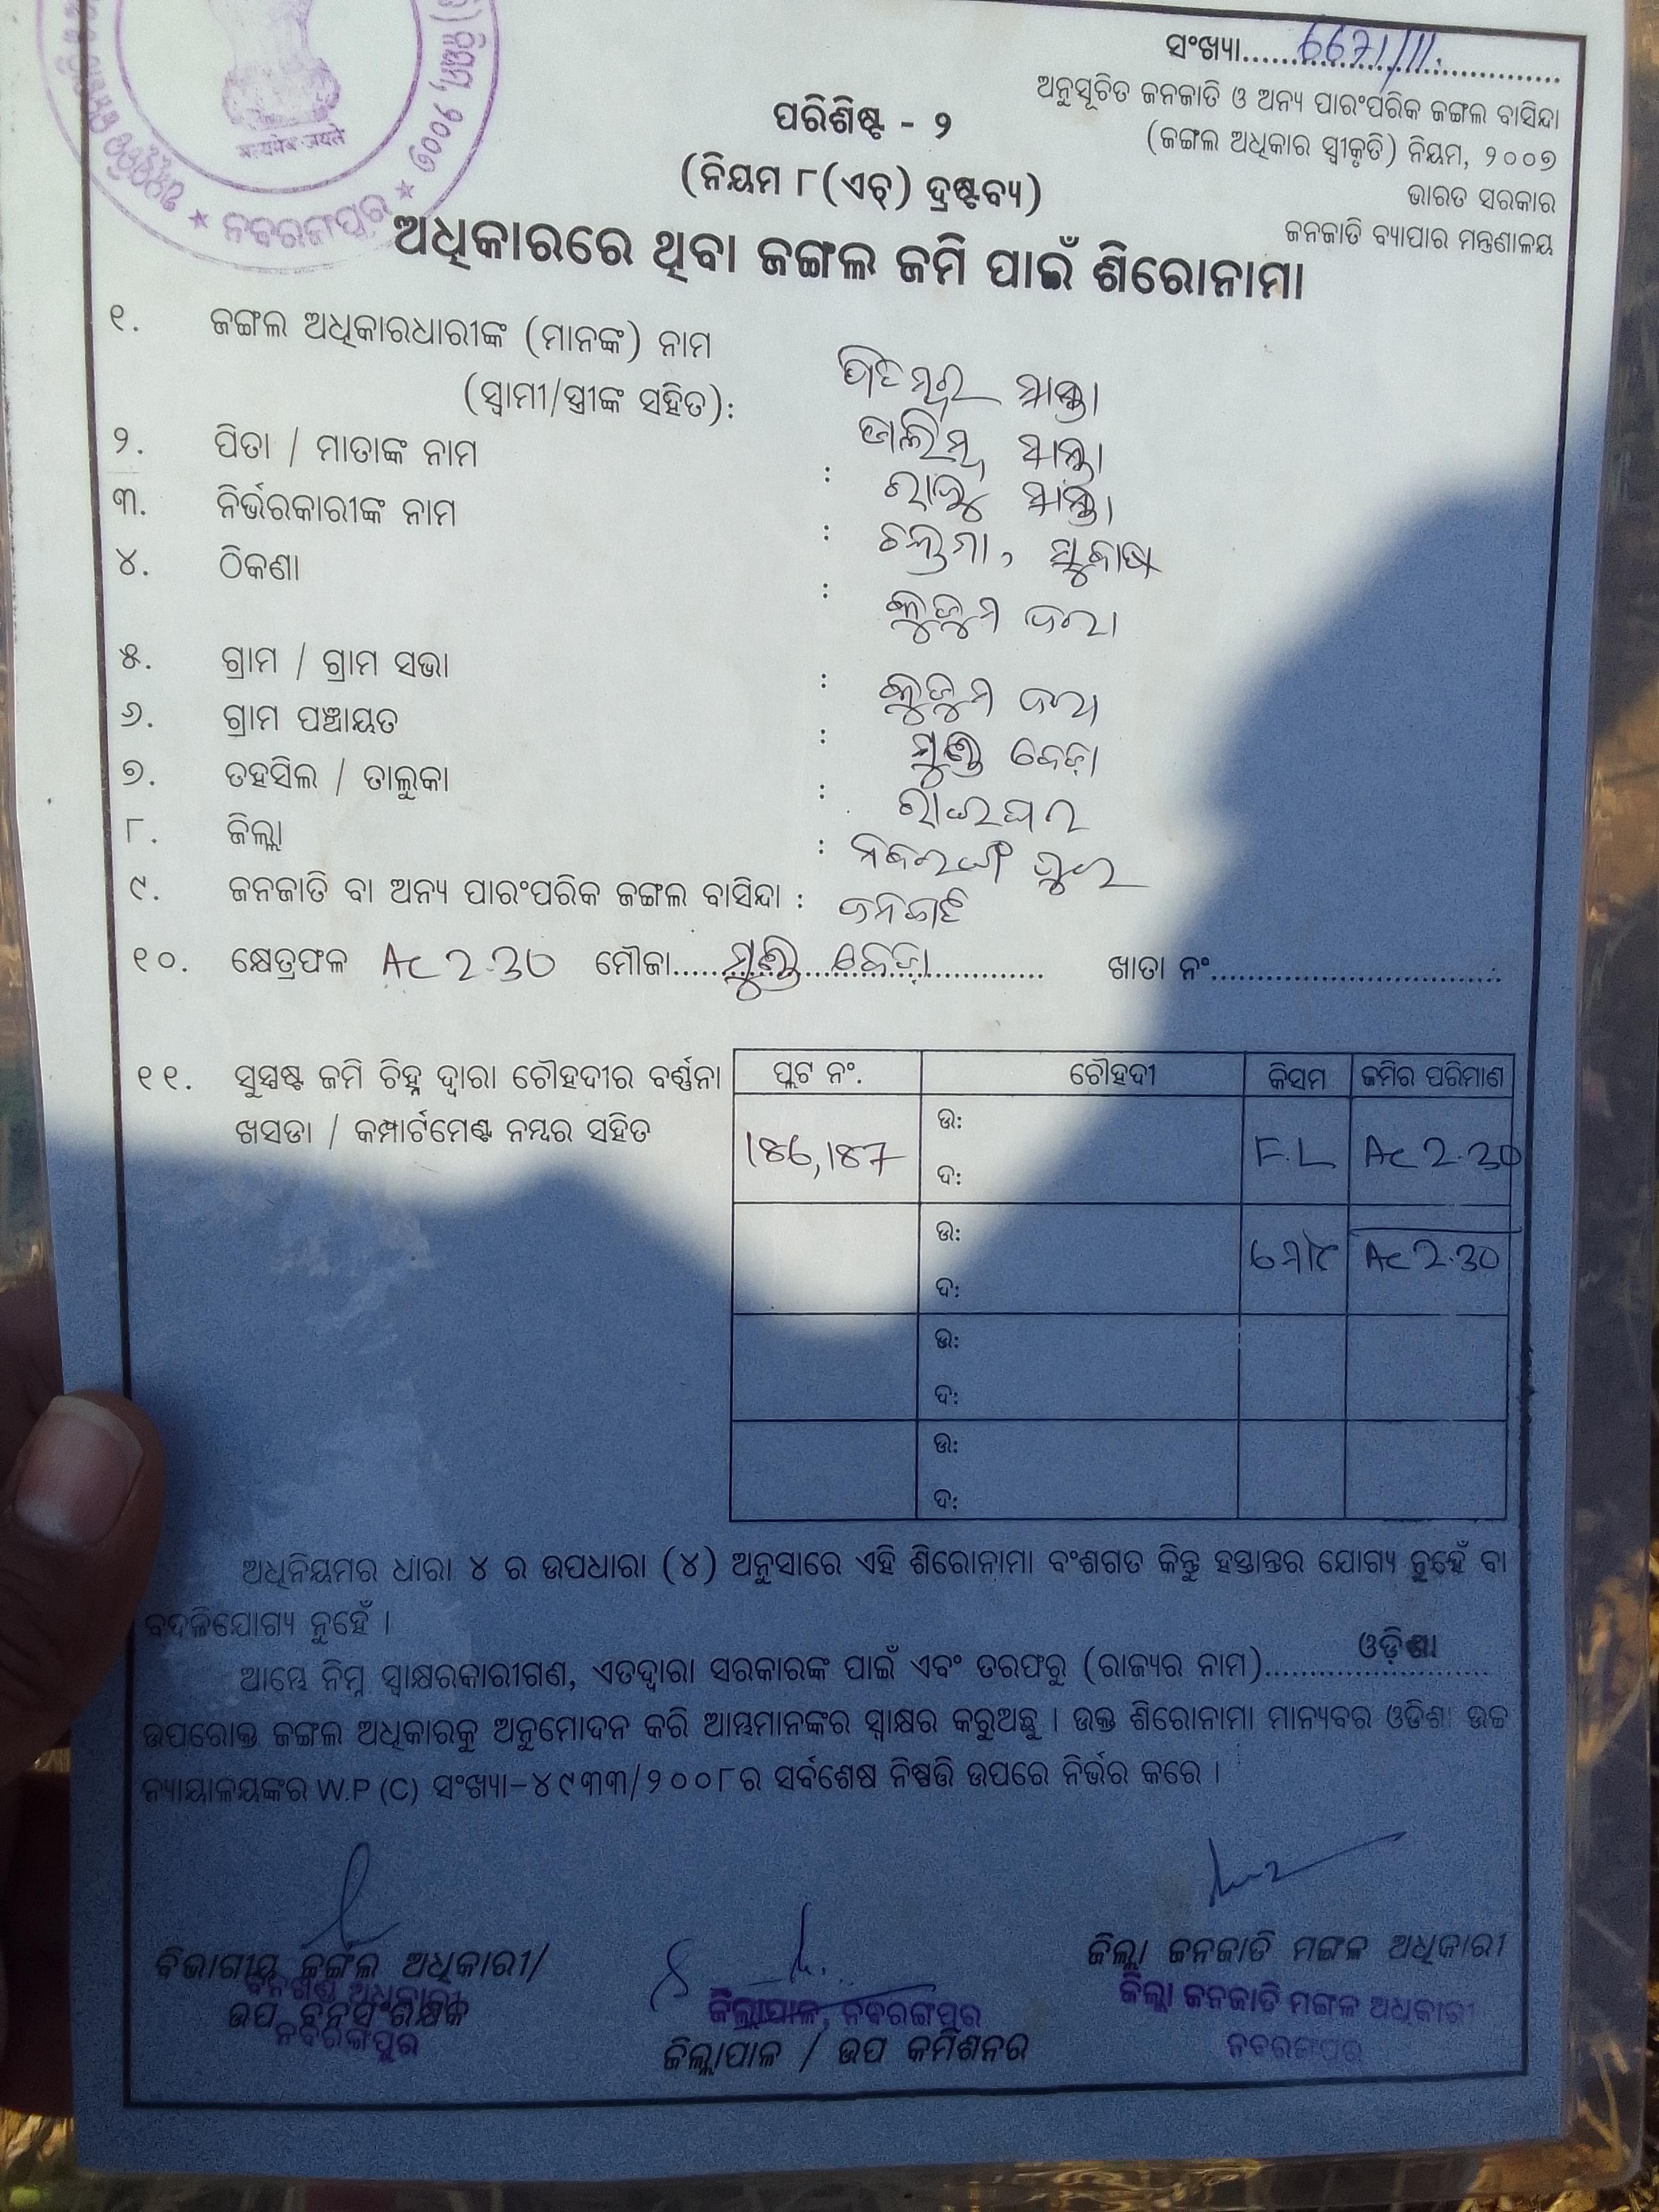 ସଂଖ୍ୟା..........6671/11..........
ଅନୁସୂଚିତ ଜନଜାତି ଓ ଅନ୍ୟ ପାରଂପରିକ ଜଙ୍ଗଲ ବାସିନ୍ଦା
(ଜଙ୍ଗଲ ଅଧିକାର ସ୍ୱୀକୃତି) ନିୟମ, ୨୦୦୭
ଭାରତ ସରକାର
ଜନଜାତି ବ୍ୟାପାର ମନ୍ତ୍ରଣାଳୟ
सत्यमेव जयते
★ ନବରଙ୍ଗପୁର ★
ପରିଶିଷ୍ଟ - ୨
(ନିୟମ ୮(ଏଚ୍) ଦ୍ରଷ୍ଟବ୍ୟ)
ଅଧିକାରରେ ଥିବା ଜଙ୍ଗଲ ଜମି ପାଇଁ ଶିରୋନାମା
୧. ଜଙ୍ଗଲ ଅଧିକାରଧାରୀଙ୍କ (ମାନଙ୍କ) ନାମ
(ସ୍ୱାମୀ/ସ୍ତ୍ରୀଙ୍କ ସହିତ):
୨. ପିତା / ମାତାଙ୍କ ନାମ :
୩. ନିର୍ଭରକାରୀଙ୍କ ନାମ :
୪. ଠିକଣା :
୫. ଗ୍ରାମ / ଗ୍ରାମ ସଭା :
୬. ଗ୍ରାମ ପଞ୍ଚାୟତ : ମୁଣ୍ଡା ବେଡ଼ା
୭. ତହସିଲ / ତାଲୁକା : ରାଇଘର
୮. ଜିଲ୍ଲା : ନବରଙ୍ଗ ପୁର
୯. ଜନଜାତି ବା ଅନ୍ୟ ପାରଂପରିକ ଜଙ୍ଗଲ ବାସିନ୍ଦା : ଜନଜାତି
୧୦. କ୍ଷେତ୍ରଫଳ Ac 2.30 ମୌଜା......ମୁଣ୍ଡା ବେଡ଼ା............ ଖାତା ନଂ..............................
୧୧. ସୁସ୍ପଷ୍ଟ ଜମି ଚିହ୍ନ ଦ୍ୱାରା ଚୌହଦୀର ବର୍ଣ୍ଣନା
ଖସଡା / କମ୍ପାର୍ଟମେଣ୍ଟ ନମ୍ବର ସହିତ
ପ୍ଲଟ ନଂ. ଚୌହଦୀ କିସମ ଜମିର ପରିମାଣ
186,187 ଉ: F.L Ac 2.30
ଦ:
ଉ: ମୋଟ Ac 2.30
ଦ:
ଉ:
ଦ:
ଉ:
ଦ:
ଅଧିନିୟମର ଧାରା ୪ ର ଉପଧାରା (୪) ଅନୁସାରେ ଏହି ଶିରୋନାମା ବଂଶଗତ କିନ୍ତୁ ହସ୍ତାନ୍ତର ଯୋଗ୍ୟ ନୁହେଁ ବା
ବଦଳିଯୋଗ୍ୟ ନୁହେଁ ।
ଆମ୍ଭେ ନିମ୍ନ ସ୍ୱାକ୍ଷରକାରୀଗଣ, ଏତଦ୍ୱାରା ସରକାରଙ୍କ ପାଇଁ ଏବଂ ତରଫରୁ (ରାଜ୍ୟର ନାମ)..........ଓଡ଼ିଶା..........
ଉପରୋକ୍ତ ଜଙ୍ଗଲ ଅଧିକାରକୁ ଅନୁମୋଦନ କରି ଆମ୍ଭମାନଙ୍କର ସ୍ୱାକ୍ଷର କରୁଅଛୁ । ଉକ୍ତ ଶିରୋନାମା ମାନ୍ୟବର ଓଡିଶା ଉଚ୍ଚ
ନ୍ୟାୟାଳୟଙ୍କର W.P (C) ସଂଖ୍ୟା-୪୯୩୩/୨୦୦୮ର ସର୍ବଶେଷ ନିଷ୍ପତ୍ତି ଉପରେ ନିର୍ଭର କରେ ।
ବିଭାଗୀୟ ଜଙ୍ଗଲ ଅଧିକାରୀ/
ବନଖଣ୍ଡ ଅଧିକାରୀ
ଉପ ବନସଂରକ୍ଷକ
ନବରଙ୍ଗପୁର
ଜିଲ୍ଲାପାଳ, ନବରଙ୍ଗପୁର
ଜିଲ୍ଲାପାଳ / ଉପ କମିଶନର
ଜିଲ୍ଲା ଜନଜାତି ମଙ୍ଗଳ ଅଧିକାରୀ
ଜିଲ୍ଲା ଜନଜାତି ମଙ୍ଗଳ ଅଧିକାରୀ
ନବରଙ୍ଗପୁର